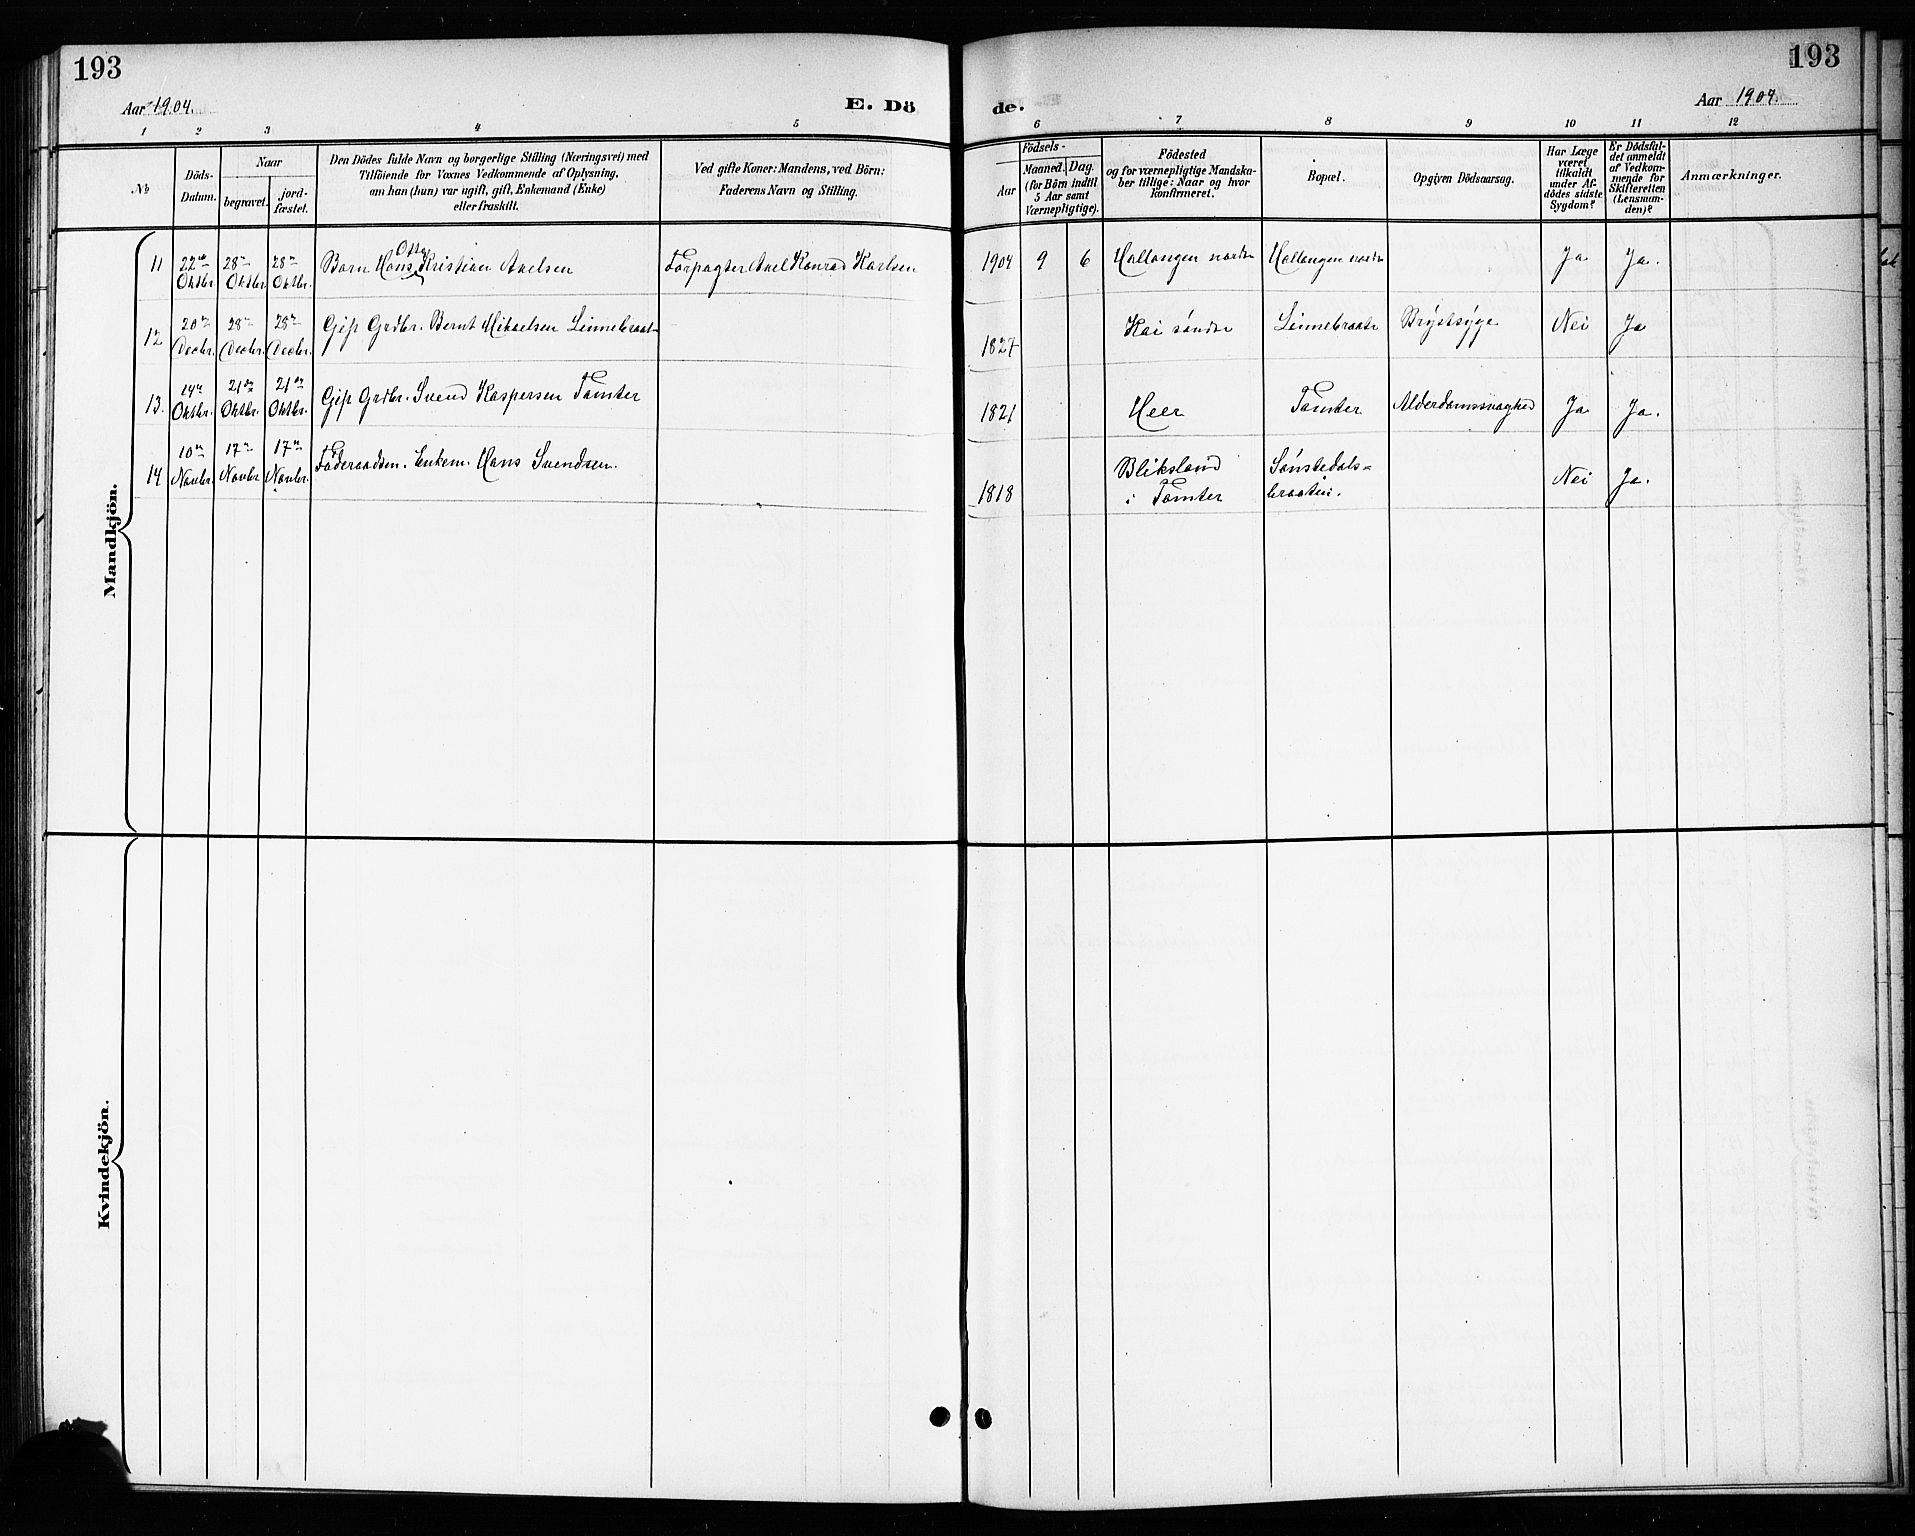 193
Aar 1904.
E. Dö
1 2 3 4 5
No
Döds-
Datum.
Naar
begravet.
jord-
fæstet.
Den Dödes fulde Navn og borgerlige Stilling (Næringsvei) med
Tilföiende for Voxnes Vedkommende af Oplysning,
om han (hun) var ugift, gift, Enkemand (Enke)
eller fraskilt.
Ved gifte Koner: Mandens, ved Börn:
Faderens Navn og Stilling.
Mandkjön.
Otto
11 22de Oktbr. 28de Oktbr. 28de Oktbr. Barn Hans Kristian Axelsen Forpagter Axel Konrad Karlsen
12 20de Decbr. 28de Decbr. 28de Decbr. Gift Grdbr. Bernt Mikaelsen Linnebraate
13. 14de Oktbr. 21de Oktbr. 21de Oktbr. Gift Grdbr. Svend Kaspersen Tomter
14 10de Novbr. 17de Novbr. 17de Novbr. Föderaadsm. Enkem. Hans Svendsen.
Kvindekjön.
193
Aar 1904.
de.
6 7 8 9 10 11 12
Födsels-
Aar
Maaned. Dag.
(for Börn indtil
5 Aar samt
Værnepligtige).
Födested
og for værnepligtige Mandska-
ber tillige: Naar og hvor
konfirmeret.
Bopæl.
Opgiven Dödsaarsag.
Har Læge
været
tilkaldt
under Af-
dödes sidste
Sygdom?
Er Dödsfal-
det anmeldt
af Vedkom-
mende for
Skifteretten
(Lensman-
den)?
Anmærkninger.
1904 9 6 Hallangen nordre Hallangen nordre Ja Ja.
1827 Kai söndre Linnebraate Brÿstsÿge Nei Ja
1821 Heer Tomter Alderdomssvaghed Ja Ja.
1818 Bliksland
i Tomter Sönstedals-
braaten. Nei Ja.